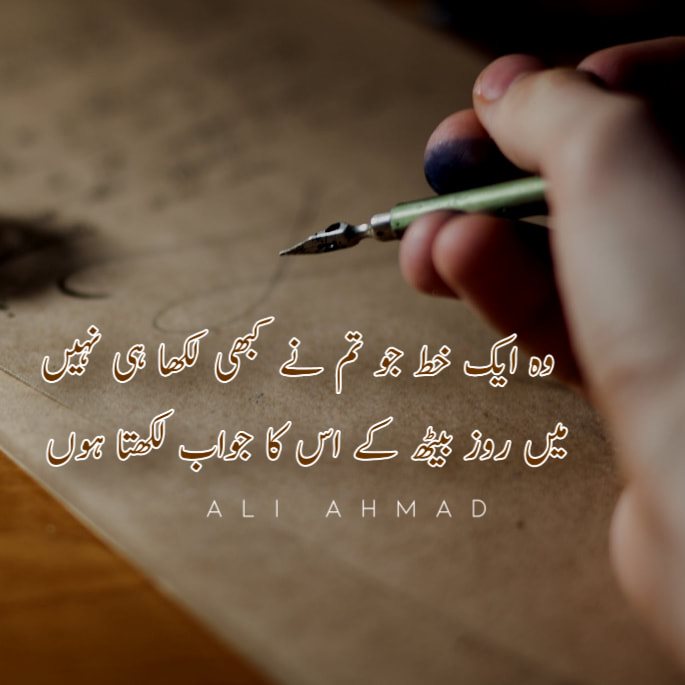 وہ ایک خط جو تم نے کبھی لکھا ہی نہیں
میں روز بیٹھ کے اس کا جواب لکھتا ہوں
ALI AHMAD